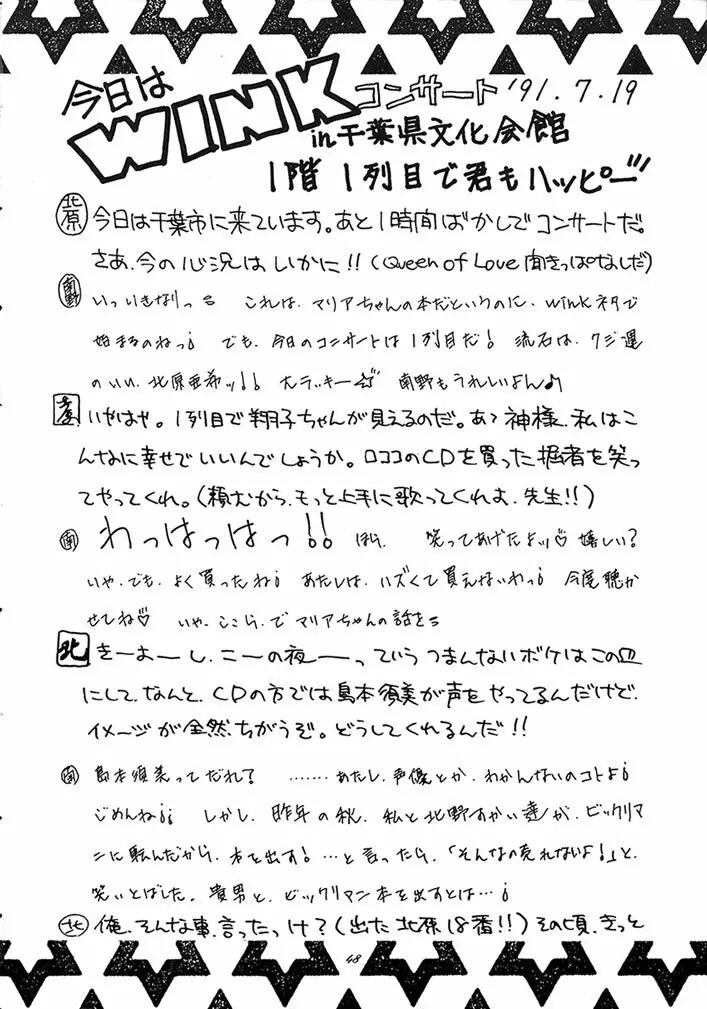 今日は
WINK コンサート '91.7.19
in 千葉県文化会館
1階1列目で君もハッピー
北原 今日は千葉市に来ています。あと1時間ばかしでコンサートだ。
さあ、今の心況はいかに!!(Queen of Love聞きっぱなしだ)
南野 いっいきなりっ これは、マリアちゃんの本だというのに、winkネタで
始まるのねっ¡ でも、今日のコンサートは1列目だ! 流石は、クジ運
のいい、北原亜希ッ!! 大ラッキー☆ 南野もうれしいよん♪
いやはや。1列目で翔子ちゃんが見えるのだ。あゝ神様、私はこ
んなに幸せでいいんでしょうか。ロココのCDを買った掘者を笑っ
てやってくれ。(頼むから、もっと上手に歌ってくれよ、先生!!)
南 わっはっはっ!! ほら、 笑ってあげたよッ♡ 嬉しい?
いや、でも、よく買ったね¡ あたしは、ハズくて買えないわっ¡ 今度聴か
せてね♡ いや、ここら、で マリアちゃんの話を
北 きーよーし、こーの夜ーっていう つまんないボケはこの皿
にして、なんと、CDの方では島本須美が声をやってるんだけど、
イメージが全然、ちがうぞ。どうしてくれるんだ!!
南 島本須美ってだれ? ……あたし、声優とか、わかんないのコトよ¡
ごめんね¡¡ しかし、昨年の秋、私と北野すかい達が、ビックリマ
ンに転んだから、本を出す!…と言ったら、「そんなの売れないよ!」と、
笑いとばした、貴男と、ビックリマン本を出すとは…¡
北 俺、そんな事、言ったっけ?(出た北原18番!!)その頃、きっと
48